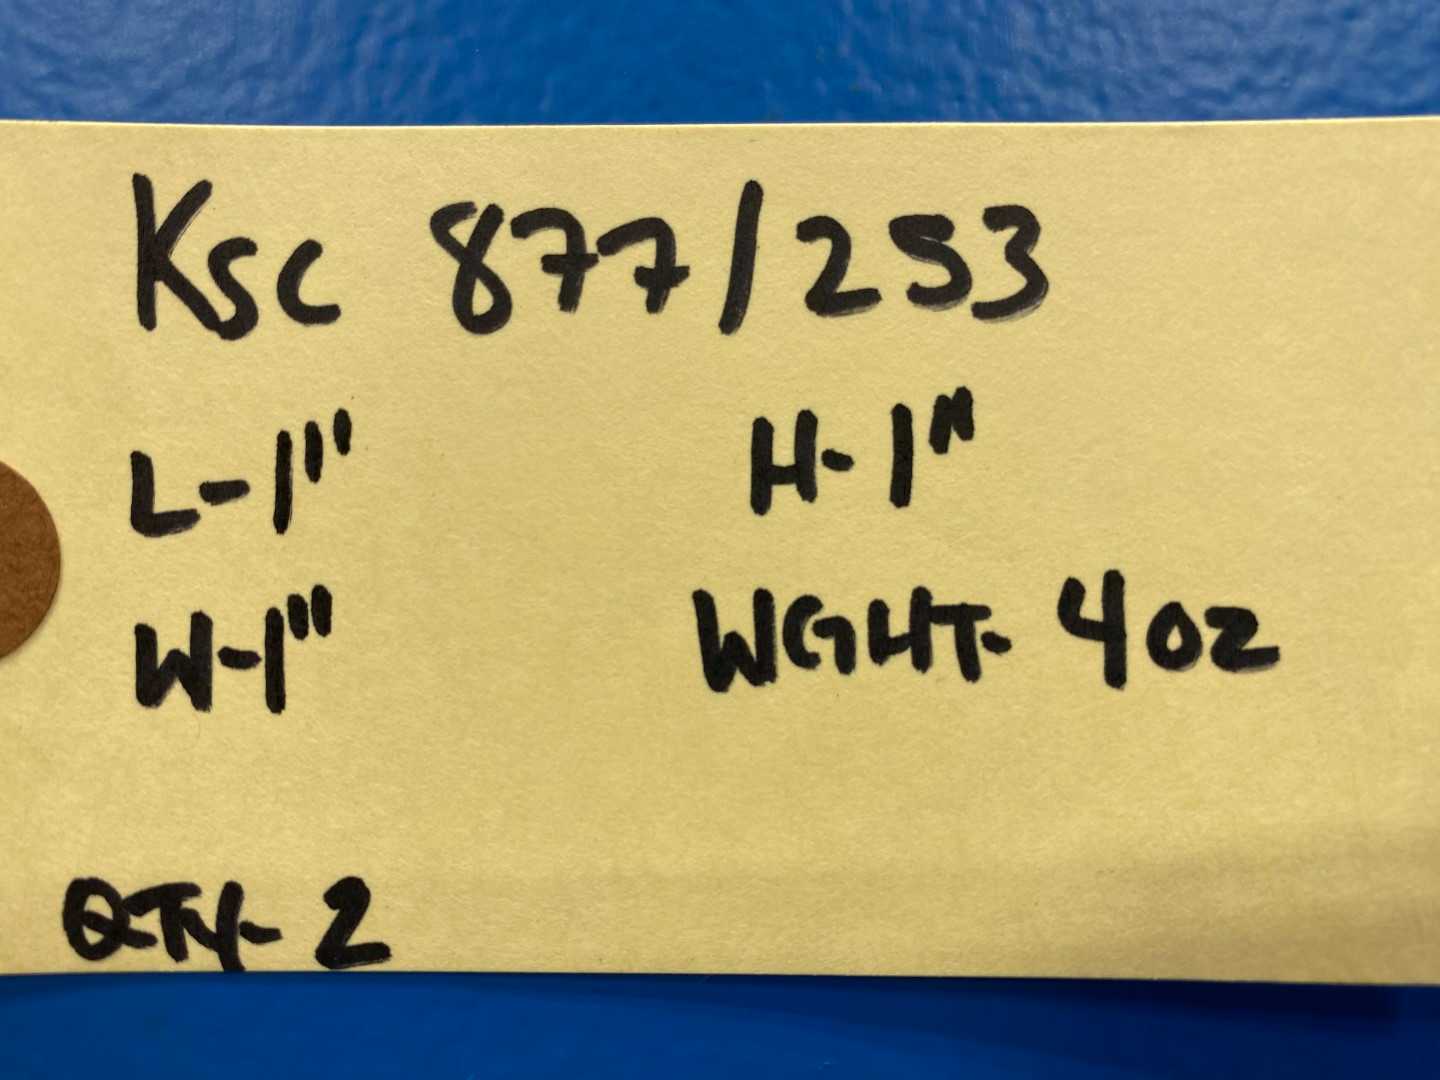 Ksc 877/253
L-1" H-1"
W-1" WGHT- 4oz
QTY- 2